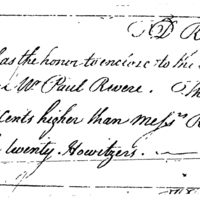 D R
has the honor to enclose to the
Mr Paul Revere. Th
cents higher than messrs R
twenty Howitzers.